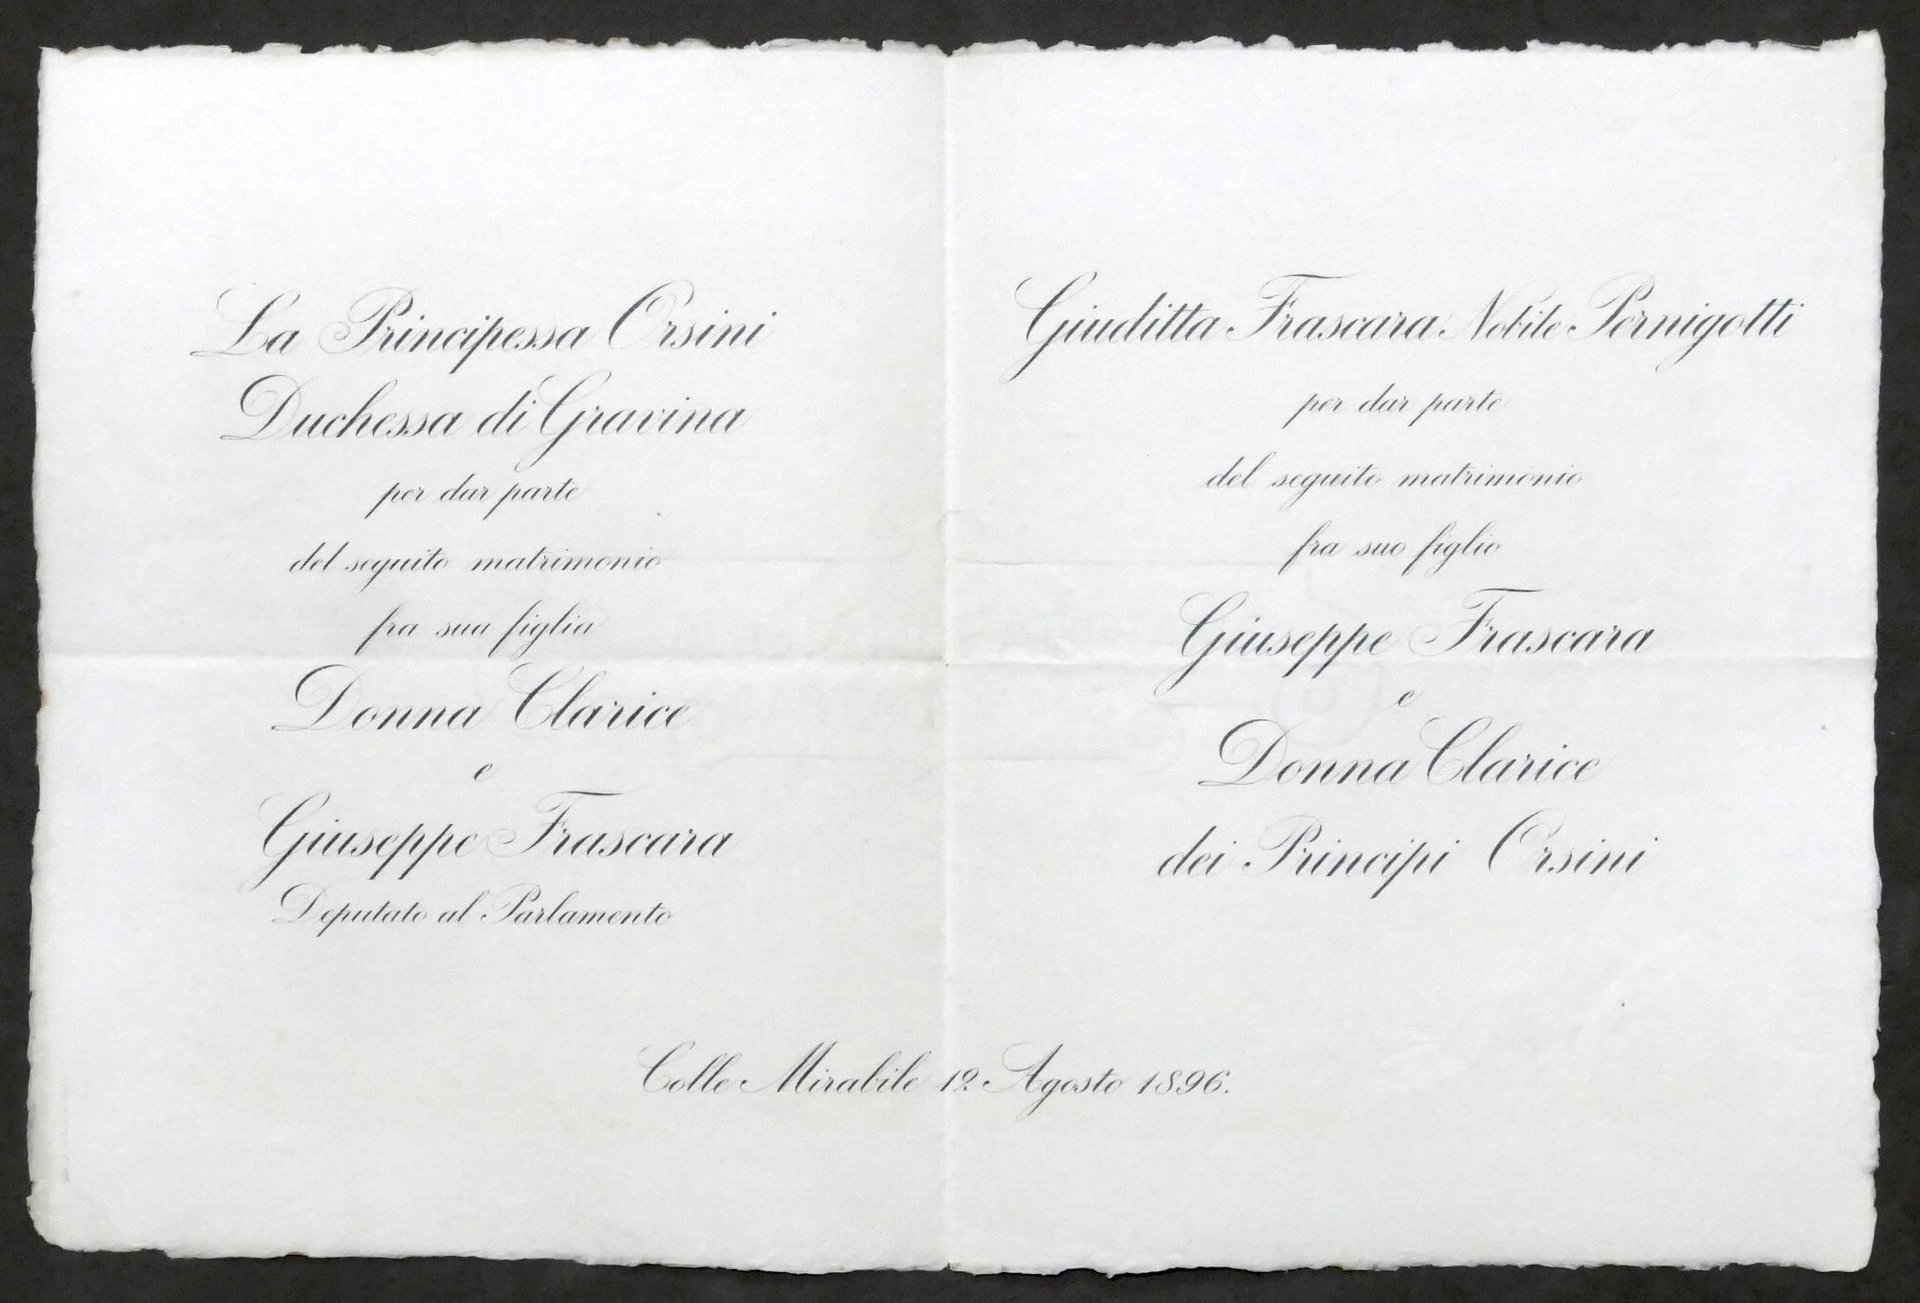 La Principessa Orsini
Duchessa di Gravina
per dar parte
del seguito matrimonio
fra sua figlia
Donna Clarice
e
Giuseppe Frascara
Deputato al Parlamento
Giuditta Frascara Nobile Pernigotti
per dar parte
del seguito matrimonio
fra suo figlio
Giuseppe Frascara
e
Donna Clarice
dei Principi Orsini
Colle Mirabile 12 Agosto 1896.